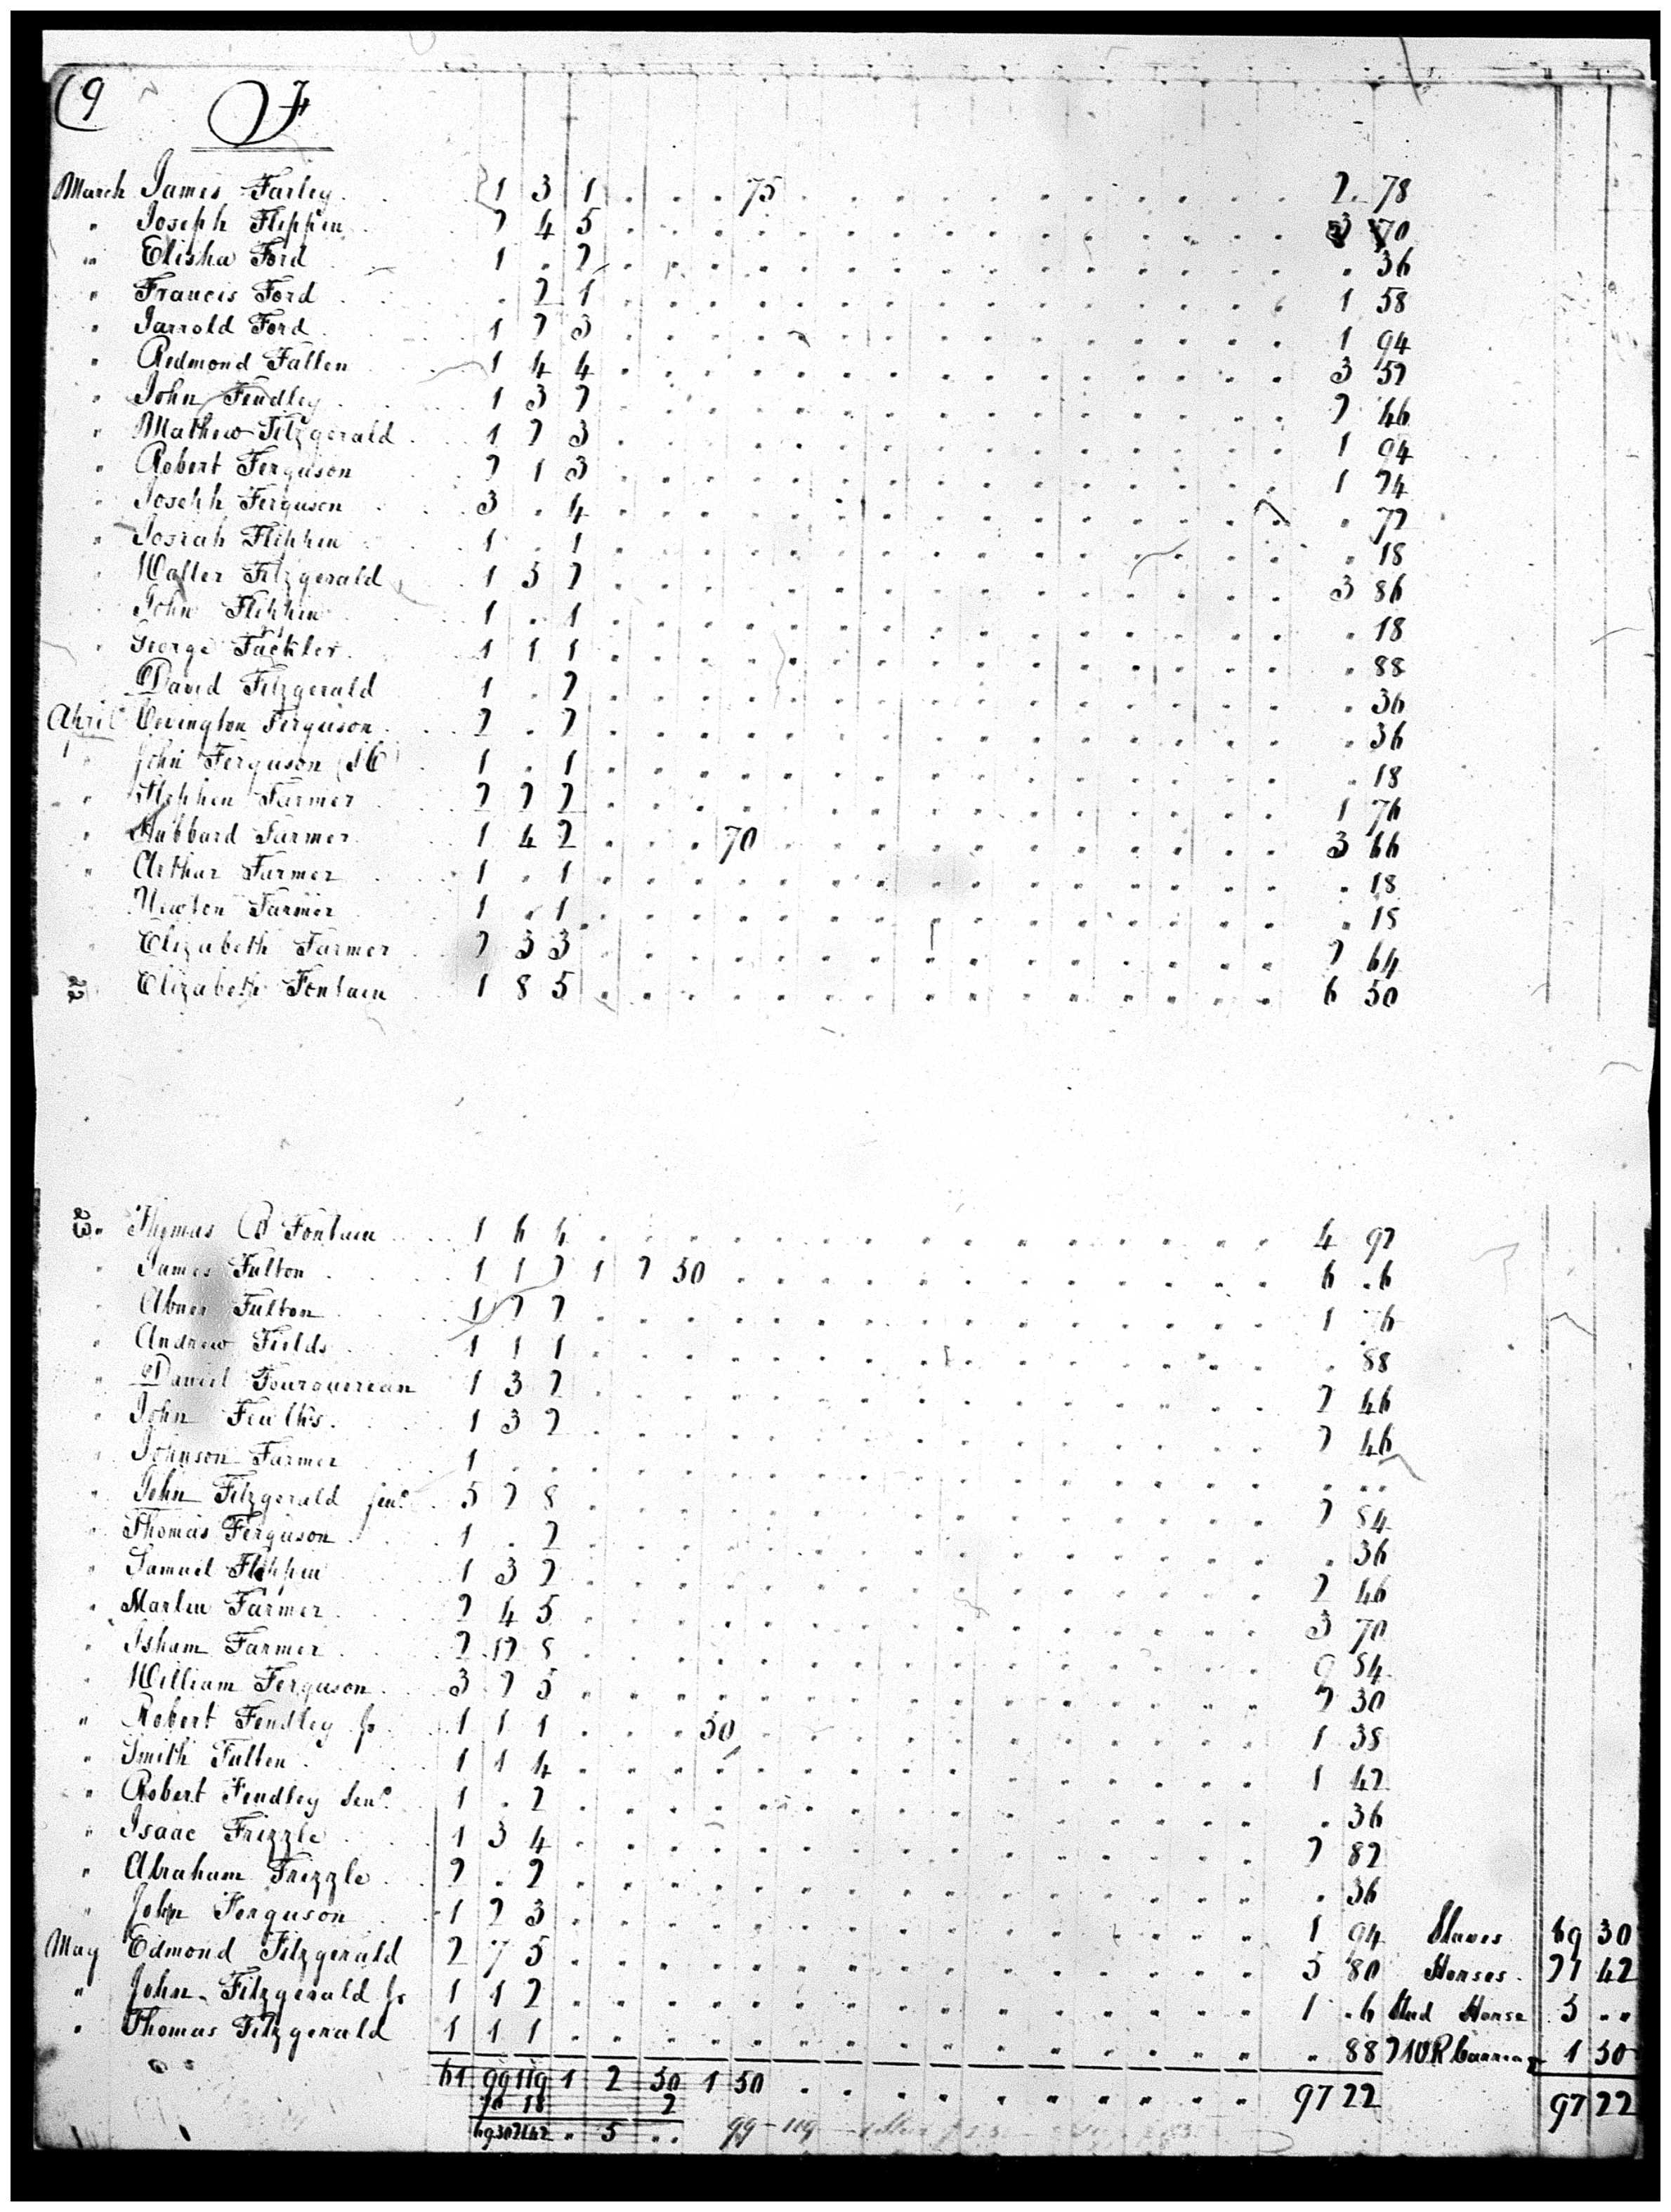 (9 F
March James Farley 1 3 1 75 2 78
" Joseph Flippin 2 4 5 3 70
" Elisha Ford 1 . 2 . 36
" Francis Ford . 2 1 1 58
" Jarrold Ford 1 2 3 1 94
" Redmond Fallen 1 4 4 3 52
" John Fendley 1 3 2 2 46
" Mathew Fitzgerald 1 2 3 1 94
" Robert Ferguson 2 1 3 1 24
" Joseph Ferguson 3 . 4 . 72
" Josiah Flippin 1 . 1 . 18
" Walter Fitzgerald 1 5 2 3 86
" John Flippin 1 . 1 . 18
" George Fackler 1 1 1 . 88
David Fitzgerald 1 . 2 . 36
April Covington Ferguson 2 . 2 . 36
" John Ferguson 1 . 1 . 18
" Stephen Farmer 2 2 2 1 76
" Hubbard Farmer 1 4 2 70 3 66
" Arthur Farmer 1 . 1 . 18
Newton Farmer 1 . 1 . 18
" Elizabeth Farmer 2 3 3 2 64
22 Elizabeth Fontain 1 8 5 6 50
23 " Thomas Fontain 1 6 4 4 92
" James Fulton 1 1 2 1 2 50 6 . 6
" Abner Fulton 1 2 2 1 76
" Andrew Fields 1 1 1 . 88
" Daniel Fourquerean 1 3 2 2 46
" John 1 3 2 2 46
" Johnson Farmer 1 . . . . .
" John Fitzgerald Senr 5 2 8 2 84
" Thomas Ferguson 1 . 2 . 36
" Samuel Flippin 1 3 2 2 46
" Martin Farmer 2 4 5 3 70
" Isham Farmer 2 12 8 9 84
" William Ferguson 3 2 5 2 30
" Robert Fendley Jr 1 1 1 50 1 38
" Smith Fallen 1 1 4 1 42
" Robert Fendley Senr 1 . 2 . 36
" Isaac Frizzle 1 3 4 2 82
" Abraham Frizzle 2 . 2 . 36
" John Ferguson 1 2 3 1 94 Slaves 69 30
May Edmond Fitzgerald 2 7 5 5 80 Horses 21 42
" John Fitzgerald Jr 1 1 2 1 . 6 Stud Horse 5 . .
" Thomas Fitzgerald 1 1 1 . 88 2 W R Carriage 1 50
61 99 119 1 2 50 1 50 97 22 97 22
70 18 2
69 30 21 42 " 5 . . 99 - 119